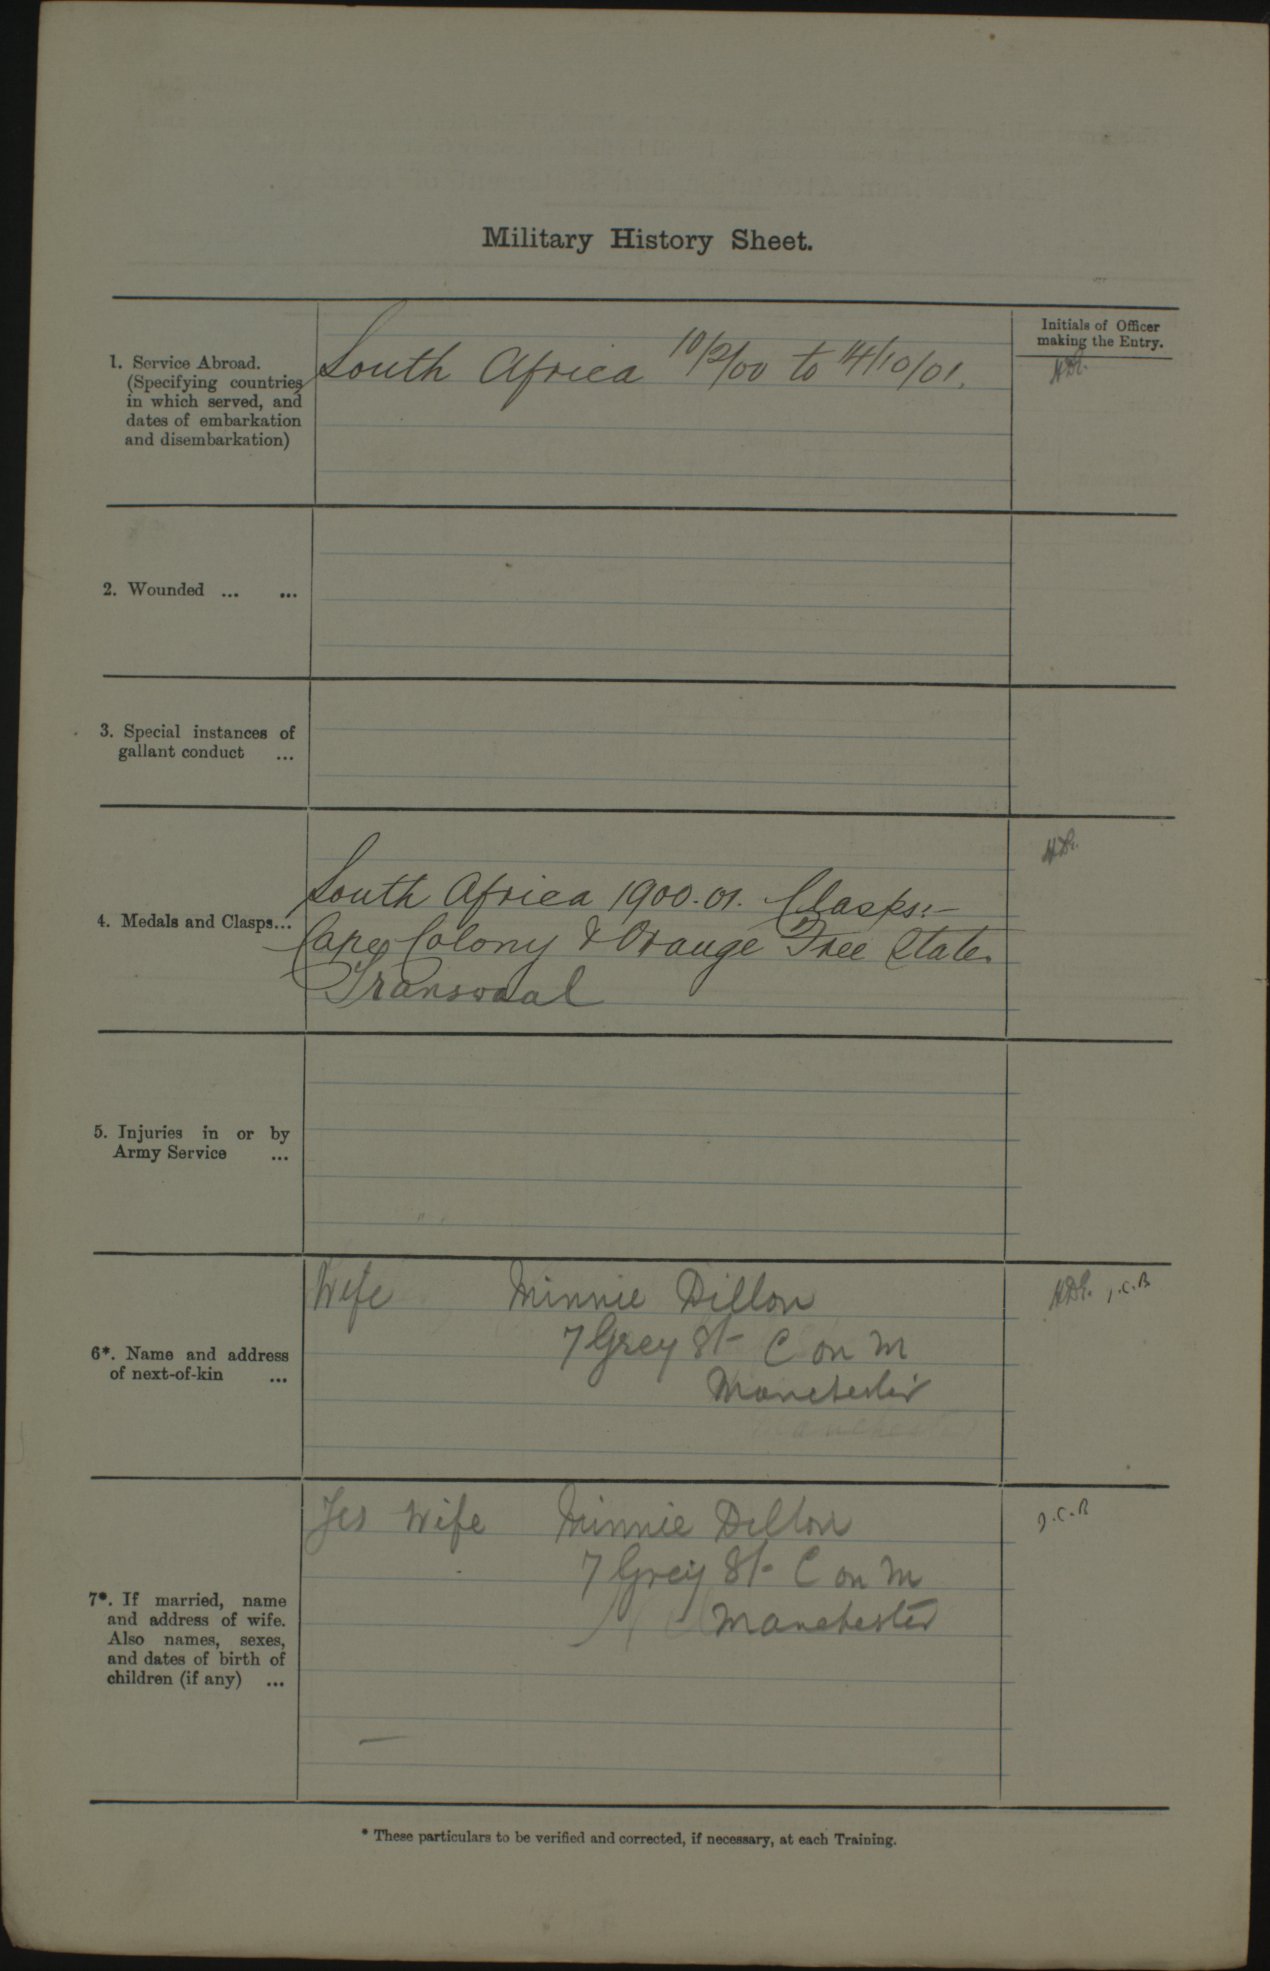 Military History Sheet.
Initials of Officer
making the Entry.
1. Service Abroad.
(Specifying countries
in which served, and
dates of embarkation
and disembarkation)
South Africa 10/2/00 to 14/10/01.
2. Wounded ... ...
3. Special instances of
gallant conduct ...
4. Medals and Clasps...
South Africa 1900-01. Clasps:-
Cape Colony & Orange Free State.
Transvaal
5. Injuries in or by
Army Service ...
6*. Name and address
of next-of-kin ...
Wife Minnie Dillon
7 Grey St C on M
Manchester
J.C.B
7*. If married, name
and address of wife.
Also names, sexes,
and dates of birth of
children (if any) ...
Yes Wife Minnie Dillon
7 Grey St C on M
Manchester
J.C.B
* These particulars to be verified and corrected, if necessary, at each Training.